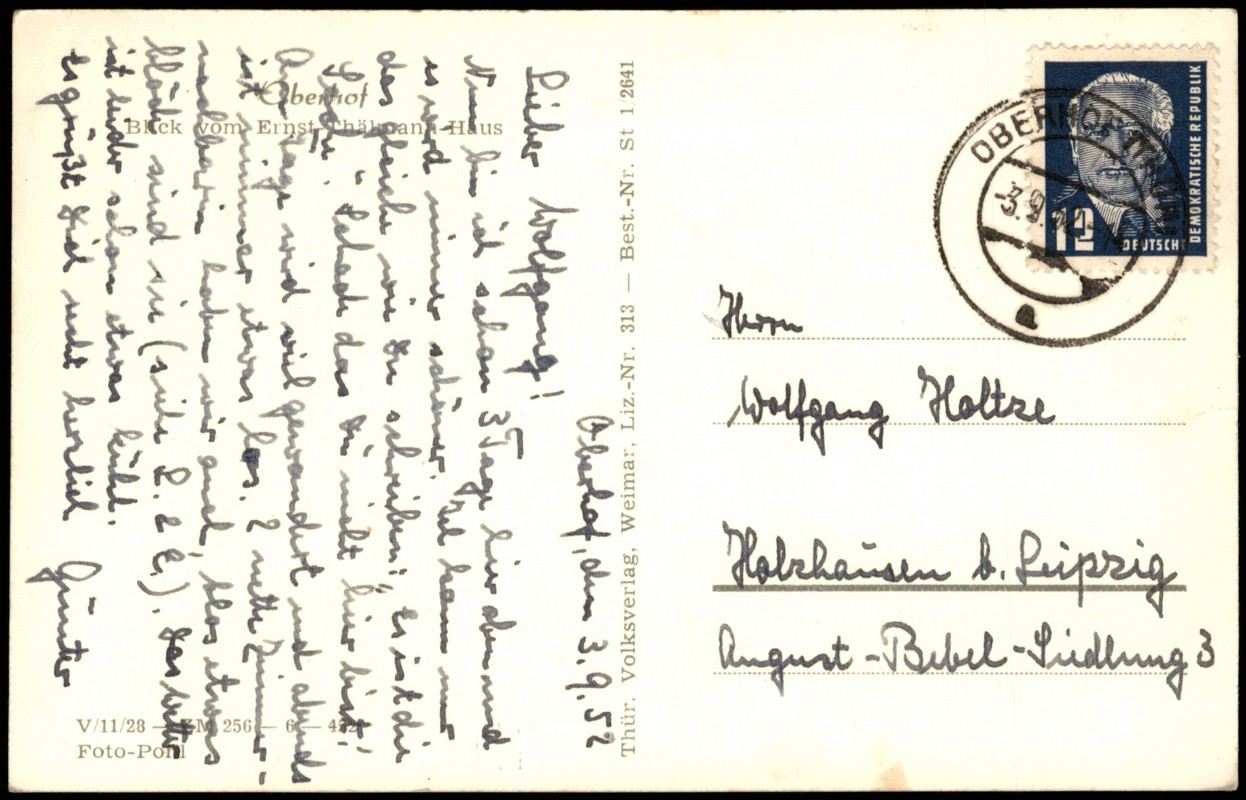 Oberhof
Blick vom Ernst-Thälmann-Haus
Oberhof, den 3.9.52
Lieber Wolfgang!
Nun bin ich schon 3 Tage hier oben und
es wird immer schöner. Ich kann nur
das gleiche wie Du schreiben: „Es ist die
Schau." Schade das Du nicht hier bist!
Am Tage wird viel gewandert und abends
ist immer etwas los. 2 nette Zimmer-
nachbarin haben wir auch, blos etwas
blöde sind sie (siehe L. d. E.). Das Wetter
ist leider schon etwas kühl.
Es grüßt Dich recht herzlich Günter
V/11/28 — 256 — 6 —
Foto-Pohl
Thür. Volksverlag, Weimar, Liz.-Nr. 313 — Best.-Nr. St 1/2641
DEUTSCHE
DEMOKRATISCHE REPUBLIK
12
OBERHOF (THÜR)
-3.9.
a
Herrn
Wolfgang Holtze
Holzhausen b. Leipzig
August-Bebel-Siedlung 3